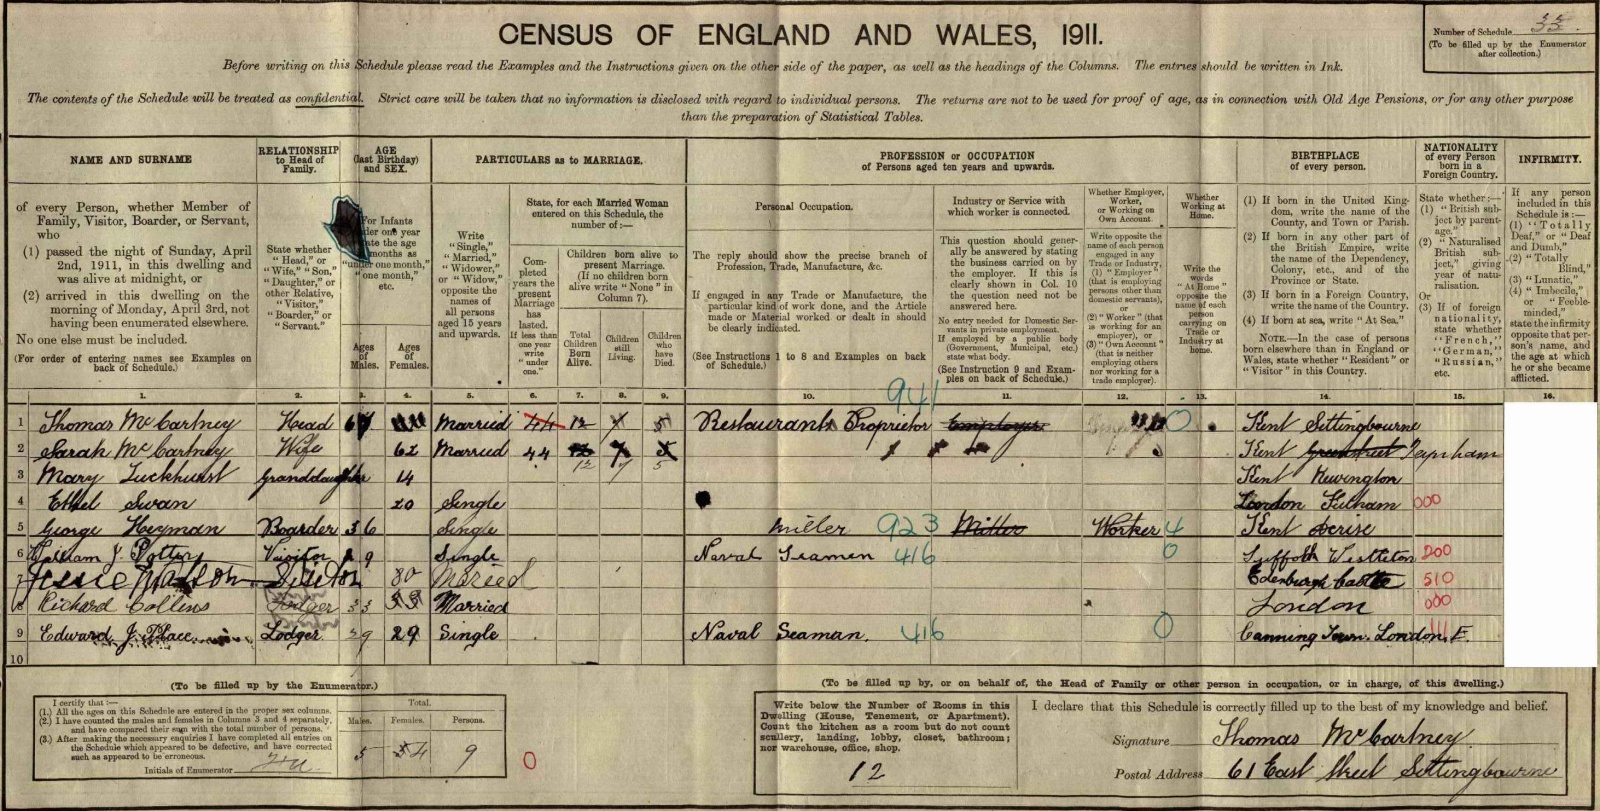 CENSUS OF ENGLAND AND WALES, 1911.
Number of Schedule 33
(To be filled up by the Enumerator
after collection.)
Before writing on this Schedule please read the Examples and the Instructions given on the other side of the paper, as well as the headings of the Columns. The entries should be written in Ink.
The contents of the Schedule will be treated as confidential. Strict care will be taken that no information is disclosed with regard to individual persons. The returns are not to be used for proof of age, as in connection with Old Age Pensions, or for any other purpose
than the preparation of Statistical Tables.
NAME AND SURNAME
of every Person, whether Member of
Family, Visitor, Boarder, or Servant,
who
(1) passed the night of Sunday, April
2nd, 1911, in this dwelling and
was alive at midnight, or
(2) arrived in this dwelling on the
morning of Monday, April 3rd, not
having been enumerated elsewhere.
No one else must be included.
(For order of entering names see Examples on
back of Schedule.)
RELATIONSHIP
to Head of
Family.
State whether
"Head," or
"Wife," "Son,"
"Daughter," or
other Relative,
"Visitor,"
"Boarder," or
"Servant."
AGE
(last Birthday)
and SEX.
For Infants
under one year
state the age
in months as
"under one month,"
"one month,"
etc.
Ages
of
Males.
Ages
of
Females.
PARTICULARS as to MARRIAGE.
Write
"Single,"
"Married,"
"Widower,"
or "Widow,"
opposite the
names of
all persons
aged 15 years
and upwards.
State, for each Married Woman
entered on this Schedule, the
number of:—
Completed
years the
present
Marriage
has
lasted.
If less than
one year
write
"under
one."
Children born alive to
present Marriage.
(If no children born
alive write "None" in
Column 7).
Total
Children
Born
Alive.
Children
still
Living.
Children
who
have
Died.
PROFESSION or OCCUPATION
of Persons aged ten years and upwards.
Personal Occupation.
The reply should show the precise branch of
Profession, Trade, Manufacture, &c.
If engaged in any Trade or Manufacture, the
particular kind of work done, and the Article
made or Material worked or dealt in should
be clearly indicated.
(See Instructions 1 to 8 and Examples on back
of Schedule.)
Industry or Service with
which worker is connected.
This question should generally
be answered by stating
the business carried on by
the employer. If this is
clearly shown in Col. 10
the question need not be
answered here.
No entry needed for Domestic Servants
in private employment.
If employed by a public body
(Government, Municipal, etc.)
state what body.
(See Instruction 9 and Examples
on back of Schedule.)
Whether Employer,
Worker,
or Working on
Own Account.
Write opposite the
name of each person
engaged in any
Trade or Industry,
(1) "Employer"
(that is employing
persons other than
domestic servants),
or
(2) "Worker" (that
is working for an
employer), or
(3) "Own Account"
(that is neither
employing others
nor working for a
trade employer).
Whether
Working at
Home.
Write the
words
"At Home"
opposite the
name of each
person
carrying on
Trade or
Industry at
home.
BIRTHPLACE
of every person.
(1) If born in the United Kingdom,
write the name of the
County, and Town or Parish.
(2) If born in any other part of
the British Empire, write
the name of the Dependency,
Colony, etc., and of the
Province or State.
(3) If born in a Foreign Country,
write the name of the Country.
(4) If born at sea, write "At Sea."
NOTE.—In the case of persons
born elsewhere than in England or
Wales, state whether "Resident" or
"Visitor" in this Country.
NATIONALITY
of every Person
born in a
Foreign Country.
State whether:—
(1) "British subject
by parentage,"
(2) "Naturalised
British
subject," giving
year of naturalisation.
Or
(3) If of foreign
nationality,
state whether
"French,"
"German,"
"Russian,"
etc.
INFIRMITY.
If any person
included in this
Schedule is:—
(1) "Totally
Deaf," or "Deaf
and Dumb,"
(2) "Totally
Blind,"
(3) "Lunatic,"
(4) "Imbecile,"
or "Feeble-minded,"
state the infirmity
opposite that person's
name, and the
age at which
he or she became
afflicted.
1. 2. 3. 4. 5. 6. 7. 8. 9. 10. 11. 12. 13. 14. 15. 16.
941
1 Thomas McCartney Head Married 44 12 7 5 Restaurant Proprietor Employer 0 Kent Sittingbourne
2 Sarah McCartney Wife 62 Married 44 12 7 5 Kent Greenstreet Teynham
3 Mary Luckhurst Granddaughter 14 Kent Newington
4 Ethel Swan 20 Single London Fulham 000
5 George Heyman Boarder 36 Single Miller 923 Miller Worker 4 Kent
6 William J. Visitor 9 Single Naval Seamen 416 0 Suffolk Westleton 200
7 Jessie 30 Maried Edenburgh Castle 510
8 Richard Collins Lodger 33 33 Married London 000
9 Edward J. Place Lodger 29 29 Single Naval Seaman. 416 0 Canning Town. London, E. 111
10
(To be filled up by the Enumerator.)
I certify that:—
(1.) All the ages on this Schedule are entered in the proper sex columns.
(2.) I have counted the males and females in Columns 3 and 4 separately,
and have compared their sum with the total number of persons.
(3.) After making the necessary enquiries I have completed all entries on
the Schedule which appeared to be defective, and have corrected
such as appeared to be erroneous.
Initials of Enumerator
Total.
Males. Females. Persons.
5 4 9
0
(To be filled up by, or on behalf of, the Head of Family or other person in occupation, or in charge, of this dwelling.)
Write below the Number of Rooms in this
Dwelling (House, Tenement, or Apartment).
Count the kitchen as a room but do not
count scullery, landing, lobby, closet, bathroom;
nor warehouse, office, shop.
12
I declare that this Schedule is correctly filled up to the best of my knowledge and belief.
Signature Thomas McCartney
Postal Address 61 East Street Sittingbourne